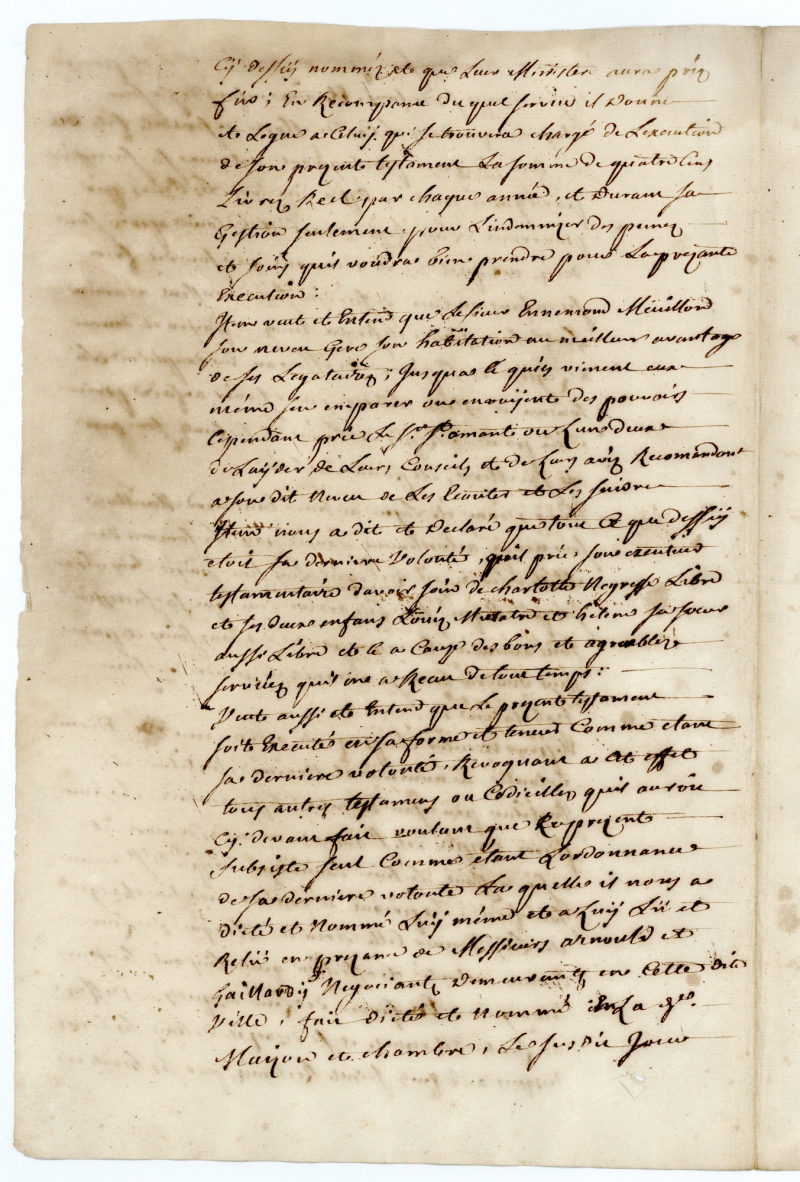 Cy dessus nommez et que leur Ministere aura pris
fin; En Recompense du quel service il Donne
et Legue a Celuy qui se trouvera chargé de Lexecution
de son present testament La somme de quatre Cens
Livres Reel par chaque année, et Durant sa
Gestion seulement pour Lindemnizer des peines
et soins quil voudra bien prendre pour La presente
Execution:
Item veut et Entend que Le sieur Ennemond Meuillon
son neveu Gere son habitation au meilleur avantage
de ses Legataires; Jusqua ce quils vienent eux
même sen emparer ou envoyent des pouvoirs
Cependant prie Le Sr. St. amant ou Lun deux
de Layder de Leurs Conseils et de Leurs avis Recomandant
a son dit Neveu de Les Ecouter et Les suivre
Item nous a dit et Declaré que tout Ce que dessus
etoit sa derniere Volonté, quil prie son executeur
testamentaire davoir soin de charlotte Negresse Libre
et ses deux enfans Louis Mulatre et hélene sa soeur
aussi Libre et ce a Cause des bons et agreables
services quil en a Reçu de tout temps:
Veut aussi et Entend que Le present testament
soit Executé en sa forme et teneur Comme etant
sa derniere volonté, Revoquant a Cet effet
tous autres testamens ou Codicilles quil auroit
Cy devant fait voulant que Le present
subsiste seul Comme étant Lordonnance
de sa derniere volonté La quelle il nous a
dicté et Nommé Luy même et a Luy Lû et
Relû en presance de Messieurs arnould et
Gaillardy Negociants Demeurants en Cette dite
Ville, fait Dicté et Nommé En La
Maison et chambre, Le susdit Jour